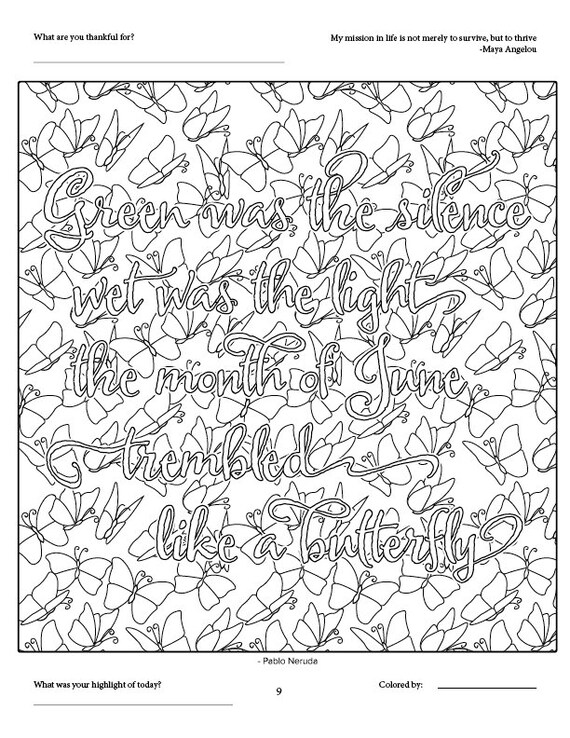 What are you thankful for?
My mission in life is not merely to survive, but to thrive
-Maya Angelou
Green was the silence
wet was the light
the month of June
trembled
like a butterfly
- Pablo Neruda
What was your highlight of today?
9
Colored by: